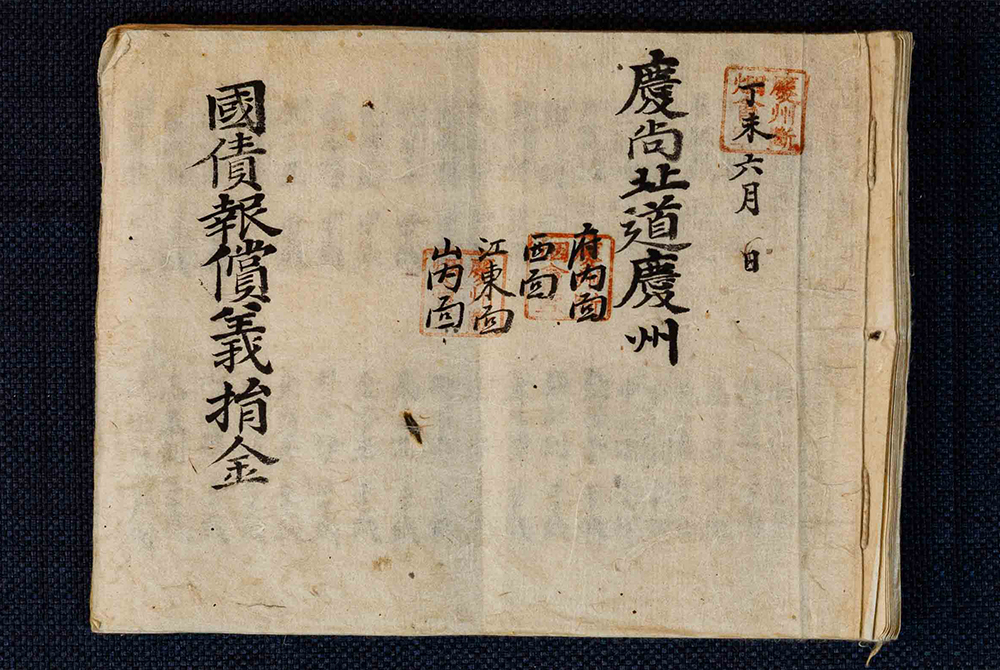 丁未六月 日
慶尚北道慶州
府内面
西面
江東面
山内面
國債報償義捐金